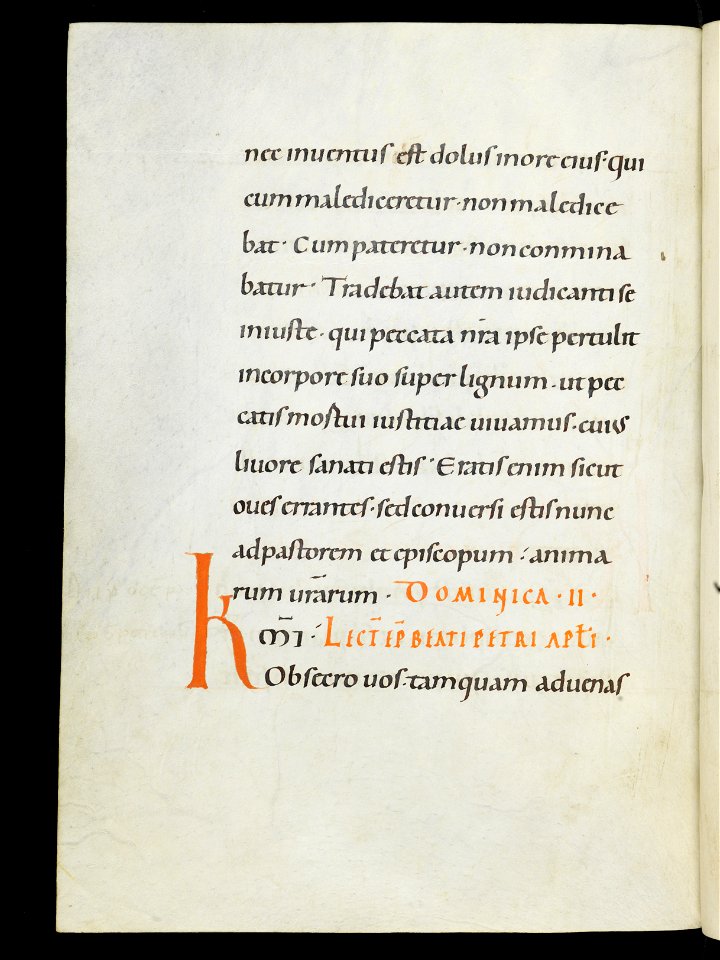 nec inuentus est dolus in ore eius · qui
cum malediceretur · non maledice
bat · Cum pateretur · non conmina
batur · Tradebat autem iudicanti se
iniuste · qui peccata n̄ra ipse pertulit
in corpore suo super lignum · ut pec
catis mortui iustitiae uiuamus · cuius
liuore sanati estis · Eratis enim sicut
oues errantes · sed conuersi estis nunc
ad pastorem et episcopum · anima
rum ur̄arum · DOMINICA · II ·
K̄m̄i · LECT̄ EP̄ BEATI PETRI APL̄I ·
Obsecro uos · tamquam aduenas